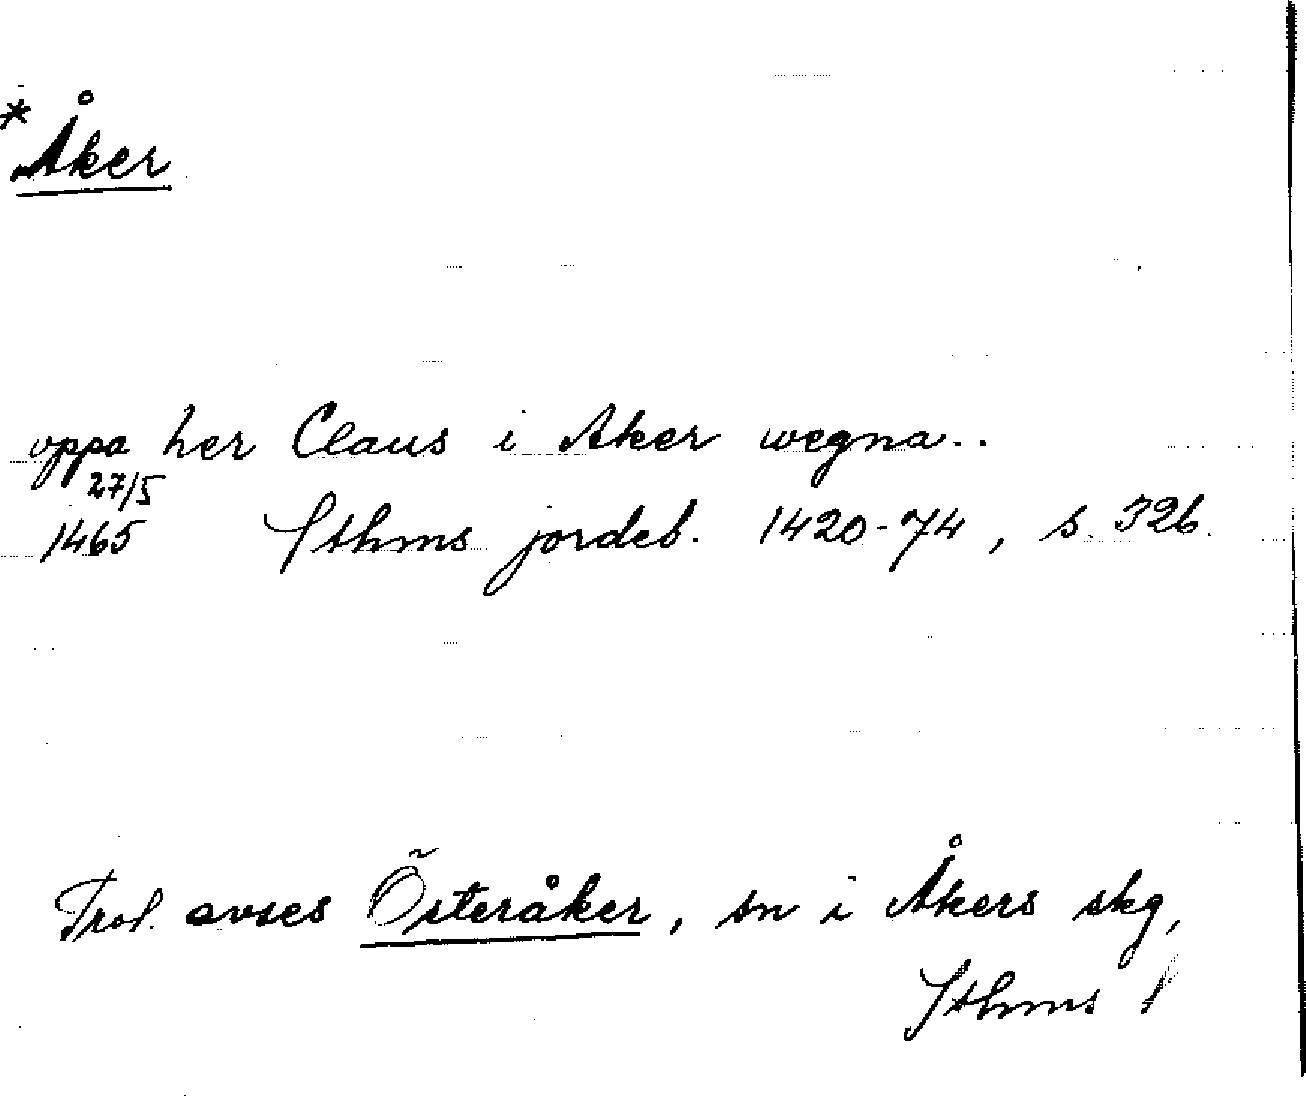 *Åker
oppa her Claus i Aker wegna..
27/5
1465 Sthms jordeb. 1420-74, s. 326.
Trol. avses Österåker, sn i Åkers skg,
Sthms l